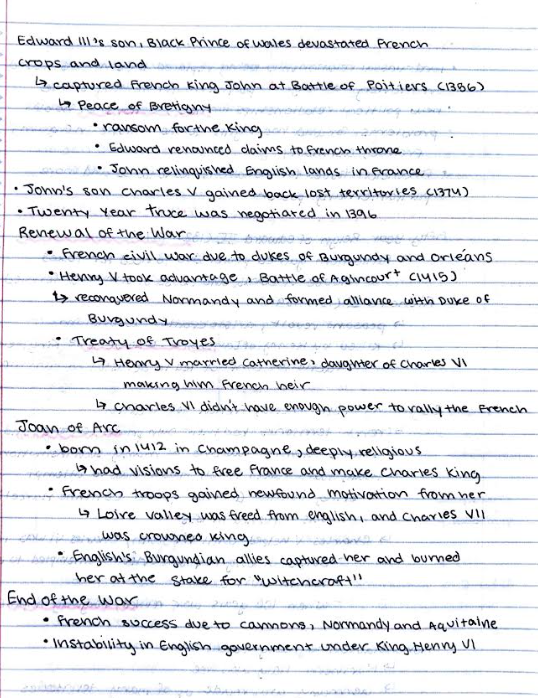 Edward III's son, Black Prince of Wales devastated French
crops and land
↳ captured French King John at Battle of Poitiers (1386)
↳ Peace of Bretigny
• ransom for the King
• Edward renounced claims to French throne
• John relinquished English lands in France
• John's son Charles V gained back lost territories (1374)
• Twenty year truce was negotiated in 1396
Renewal of the War
• French civil war due to dukes of Burgundy and Orléans
• Henry V took advantage, Battle of Agincourt (1415)
↳ reconquered Normandy and formed alliance with Duke of
Burgundy
• Treaty of Troyes
↳ Henry V married Catherine, daughter of Charles VI
making him French heir
↳ Charles VI didn't have enough power to rally the French
Joan of Arc
• born in 1412 in Champagne, deeply religious
↳ had visions to free France and make Charles King
• French troops gained newfound motivation from her
↳ Loire Valley was freed from english, and Charles VII
was crowned king
• English's Burgundian allies captured her and burned
her at the stake for "witchcraft"
End of the War
• French success due to cannons, Normandy and Aquitaine
• Instability in English government under King Henry VI